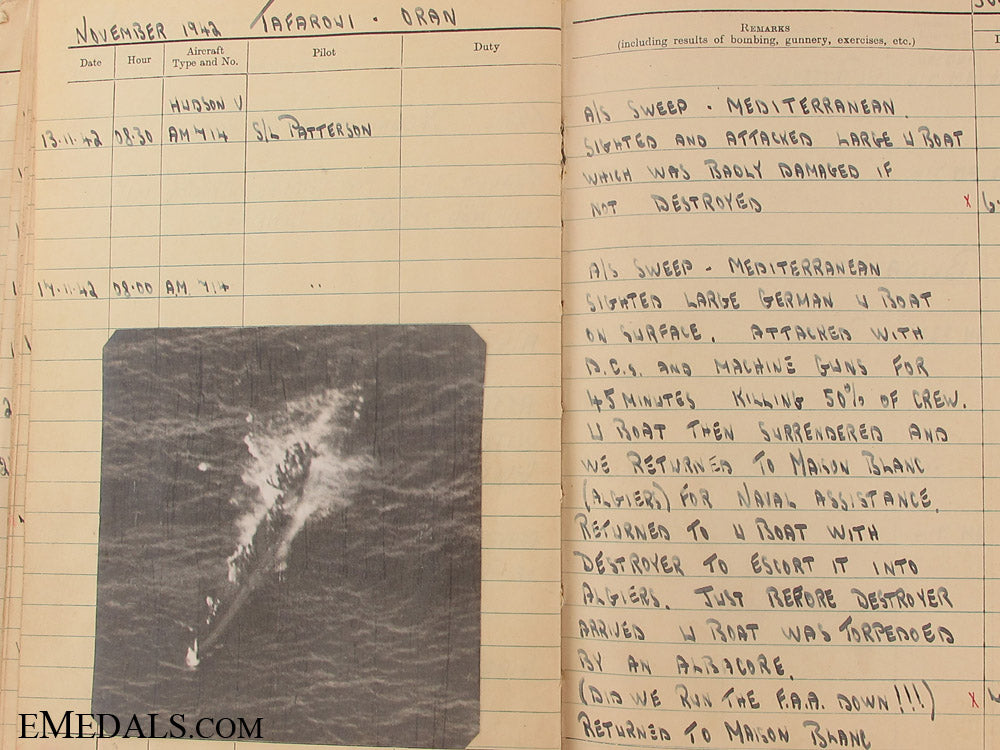 NOVEMBER 1942 / TAFAROUI · ORAN
Date Hour Aircraft Type and No. Pilot Duty
REMARKS
(including results of bombing, gunnery, exercises, etc.)
HUDSON V
13·11·42 08·30 AM 714 S/L PATTERSON
A/S SWEEP · MEDITERRANEAN
SIGHTED AND ATTACKED LARGE U BOAT
WHICH WAS BADLY DAMAGED IF
NOT DESTROYED x
17·11·42 08·00 AM 714 "
A/S SWEEP - MEDITERRANEAN
SIGHTED LARGE GERMAN U BOAT
ON SURFACE. ATTACKED WITH
D.C.s. AND MACHINE GUNS FOR
45 MINUTES KILLING 50% OF CREW.
U BOAT THEN SURRENDERED AND
WE RETURNED TO MAISON BLANC
(ALGIERS) FOR NAVAL ASSISTANCE.
RETURNED TO U BOAT WITH
DESTROYER TO ESCORT IT INTO
ALGIERS. JUST BEFORE DESTROYER
ARRIVED U BOAT WAS TORPEDOED
BY AN ALBACORE.
(DID WE RUN THE F.A.A. DOWN!!!) x
RETURNED TO MAISON BLANC
EMEDALS.COM